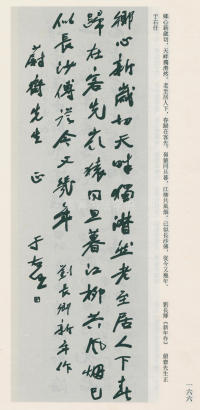 鄉心新歲切，天畔獨潸然。老至居人下，春歸在客先。嶺猿同旦暮，江柳共風烟。已似長沙傅，從今又幾年。 劉長卿《新年作》 蔚樹先生正
于右任
鄉心新歲切天畔獨潸然老至居人下春
歸在客先嶺猿同旦暮江柳共風烟已
似長沙傅從今又幾年 劉長卿新年作
蔚樹先生 正 于右任
一六六